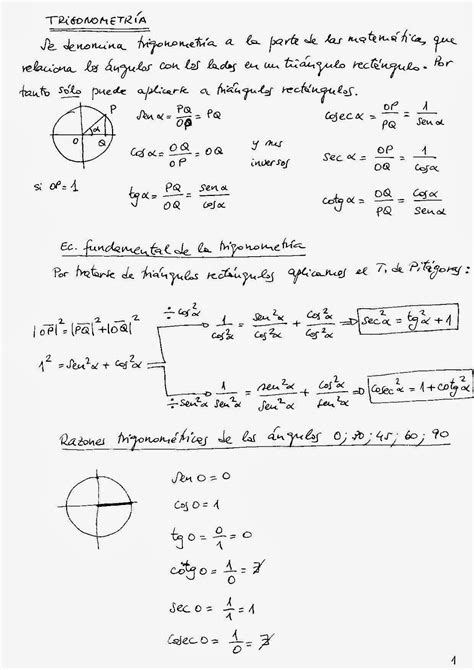 TRIGONOMETRÍA
Se denomina trigonometría a la parte de las matemáticas, que
relaciona los ángulos con los lados en un triángulo rectángulo. Por
tanto sólo puede aplicarse a triángulos rectángulos.
P
α
O
Q
si OP = 1
sen α = PQ/OP = PQ
cos α = OQ/OP = OQ
tg α = PQ/OQ = sen α/cos α
y sus
inversos
cosec α = OP/PQ = 1/sen α
sec α = OP/OQ = 1/cos α
cotg α = OQ/PQ = cos α/sen α
Ec. fundamental de la trigonometría
Por tratarse de triángulos rectángulos aplicamos el T. de Pitágoras:
|OP|² = |PQ|² + |OQ|²
1² = sen²α + cos²α
÷ cos²α 1/cos²α = sen²α/cos²α + cos²α/cos²α ⇒ sec²α = tg²α + 1
÷ sen²α 1/sen²α = sen²α/sen²α + cos²α/sen²α ⇒ cosec²α = 1 + cotg²α
Razones trigonométricas de los ángulos 0; 30; 45; 60; 90
sen 0 = 0
cos 0 = 1
tg 0 = 0/1 = 0
cotg 0 = 1/0 = ∄
sec 0 = 1/1 = 1
cosec 0 = 1/0 = ∄
1